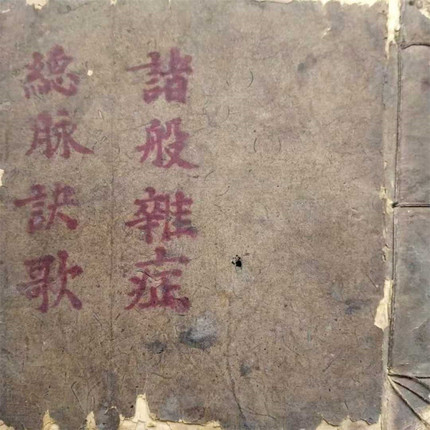 諸般雜症
總脉訣歌